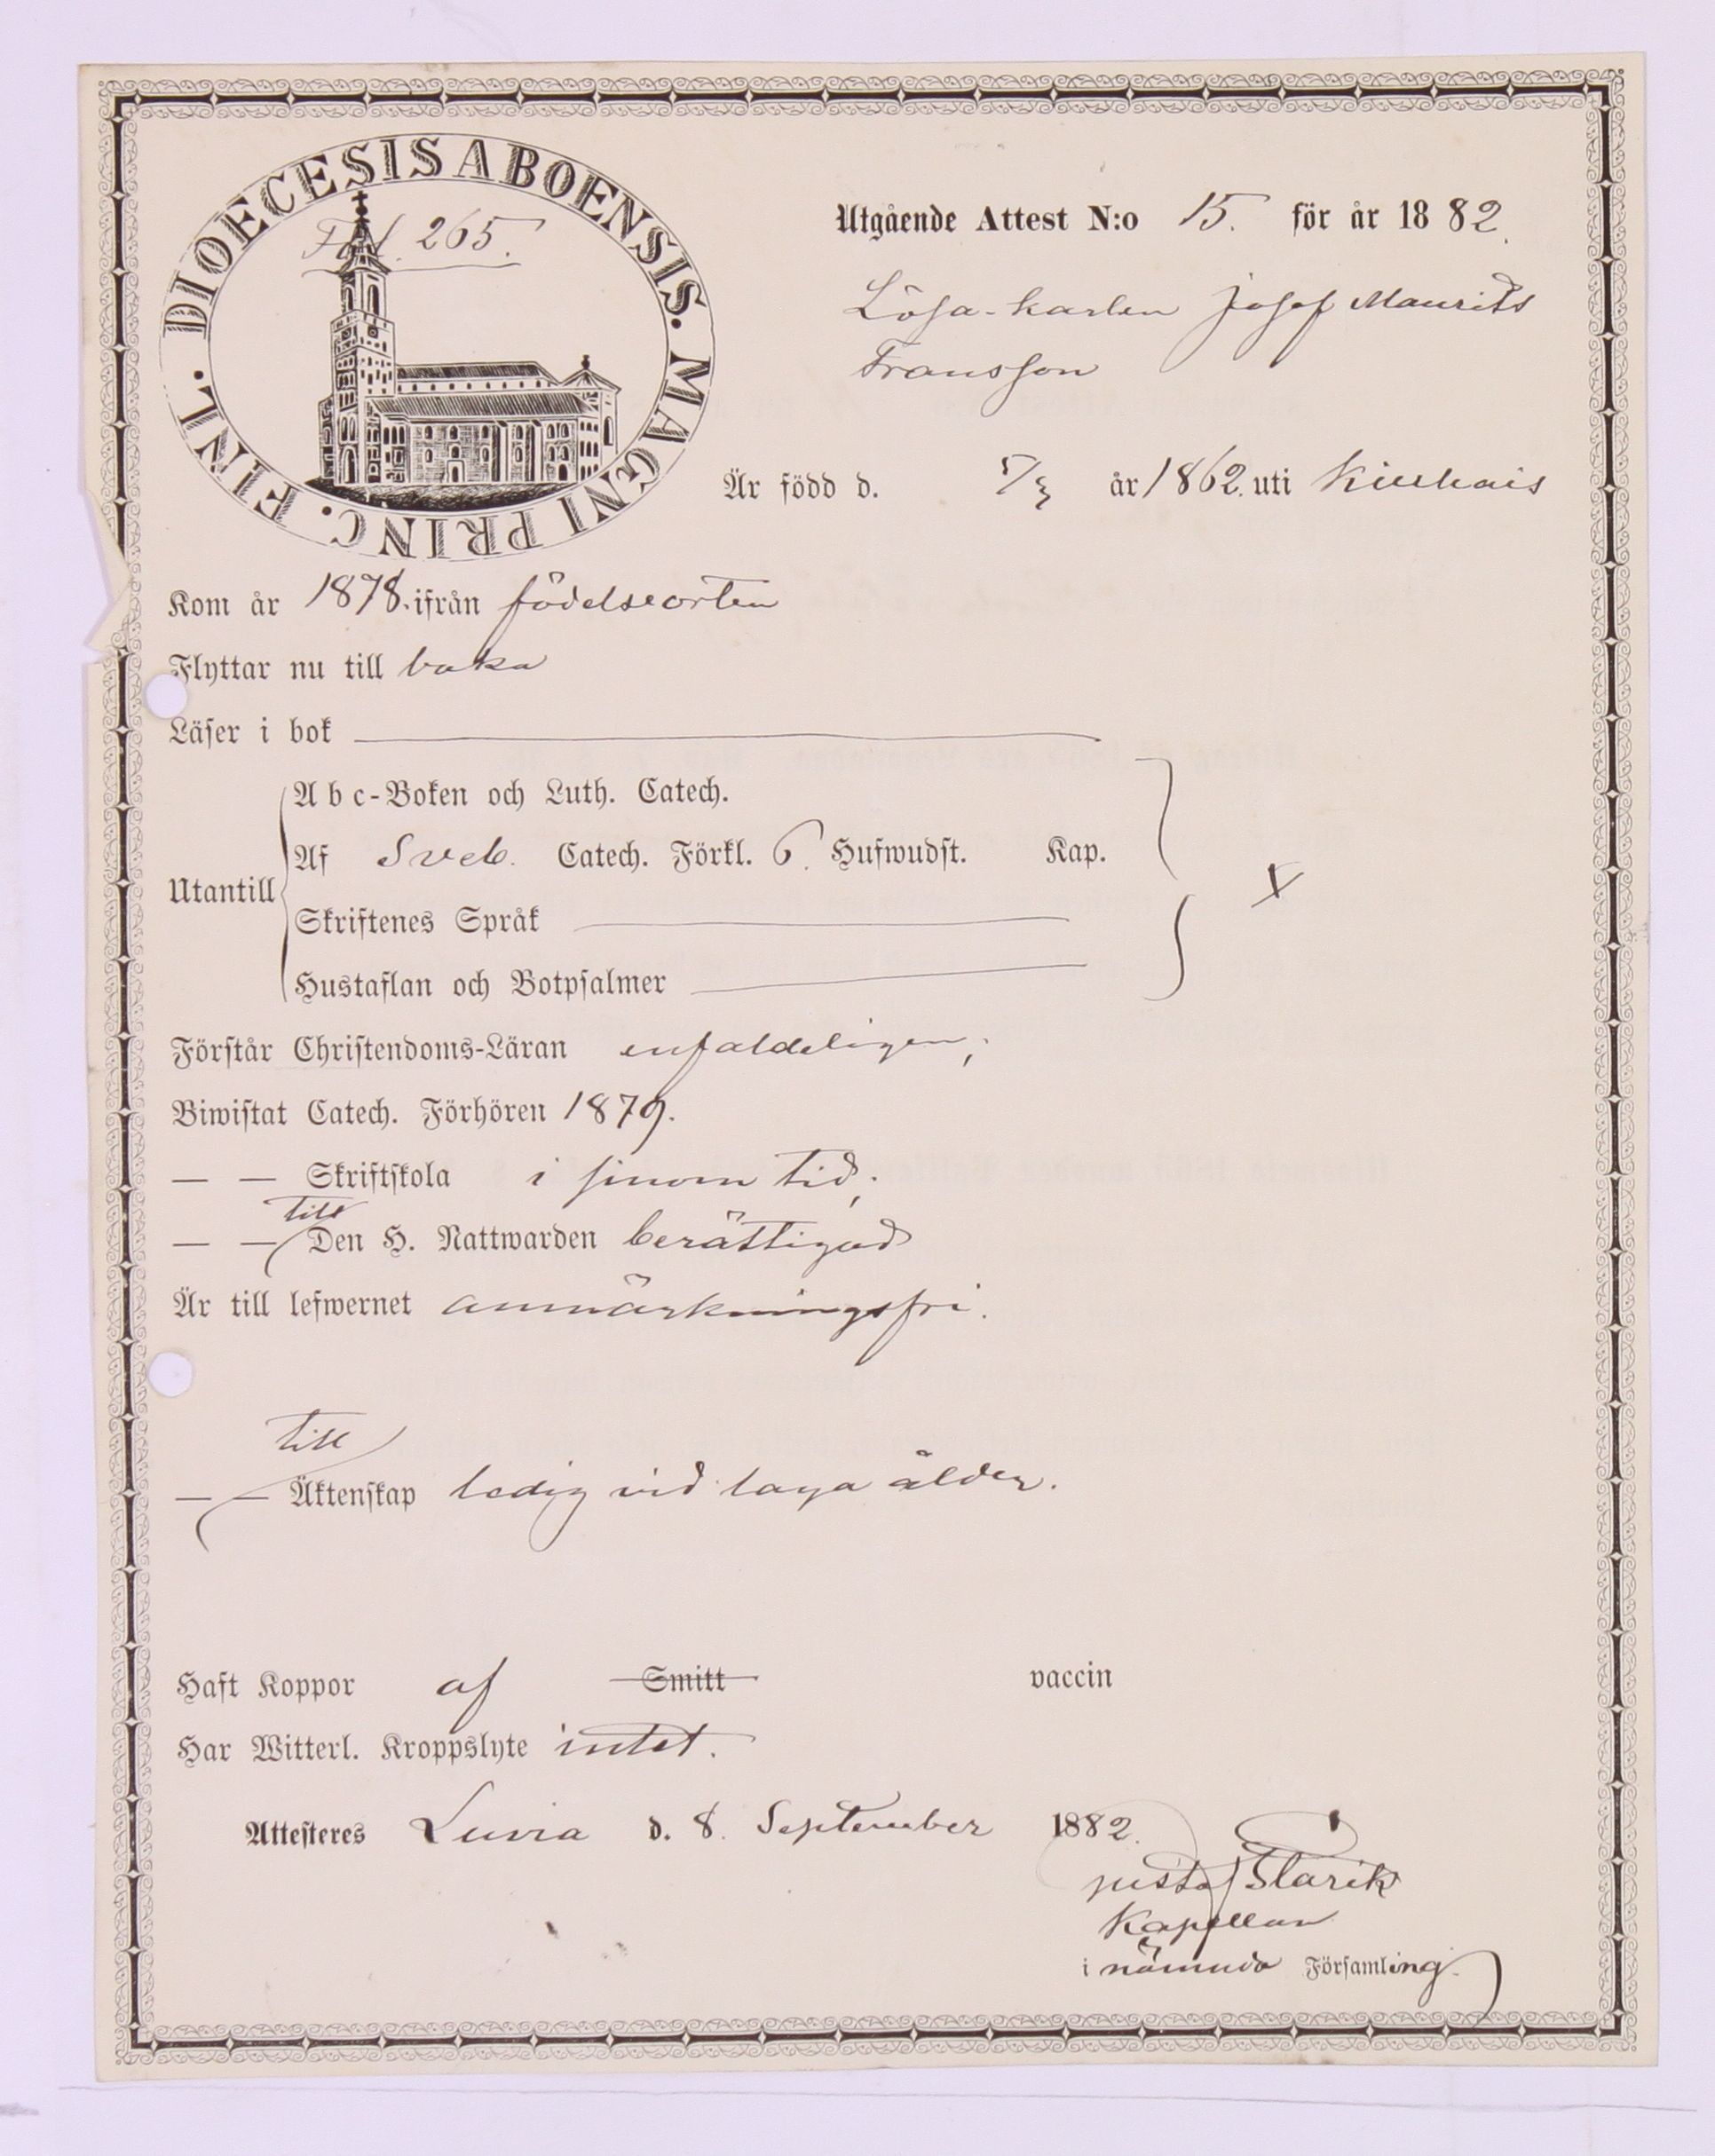 DIOECESIS ABOENSIS. MAGNI PRINC. FINL.
Fol. 265.
Utgående Attest N:o 15. för år 1882.
Lösa-karlen Josef Maurits
Fransson
Är född d. 5/3 år 1862. uti Kiukais
Kom år 1878. ifrån födelseorten
Flyttar nu till baka
Läser i bok
Abc-Boken och Luth. Catech.
Af Sveb. Catech. Förkl. 6. Hufwudst. Kap.
Utantill
Skriftenes Språk
Hustaflan och Botpsalmer
Förstår Christendoms-Läran enfaldeligen;
Biwistat Catech. Förhören 1879.
— — Skriftskola i sinom tid;
till
— — Den H. Nattwarden berättigad
Är till lefwernet anmärkningsfri.
till
— — Äktenskap ledig vid laga ålder.
Haft Koppor af Smitt vaccin
Har Witterl. Kroppslyte intet.
Attesteres Luvia d. 8. September 1882.
Gustaf Starik
Kapellan
i nämnda Församling.